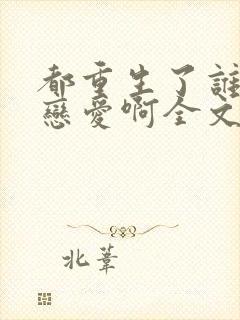 都重生了誰
戀愛啊全文
北葦